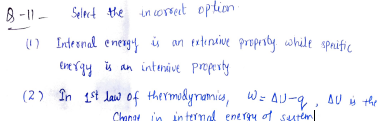 Q-11- Select the incorrect option
(1) Internal energy is an extensive property while specific
energy is an intensive property
(2) In 1st law of thermodynamics, W = ΔU-q, ΔU is the
Change in internal energy of system